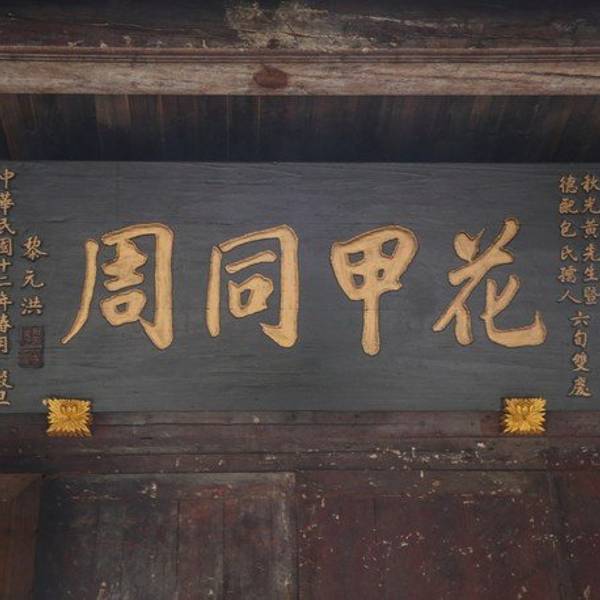 秋光黃先生暨
德配包氏孺人
六旬雙慶
花甲同周
黎元洪
中華民國十二年春月 穀旦